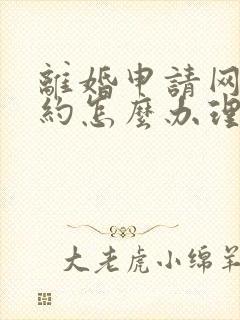 離婚申請网
約怎麼办理
大老虎小绵羊